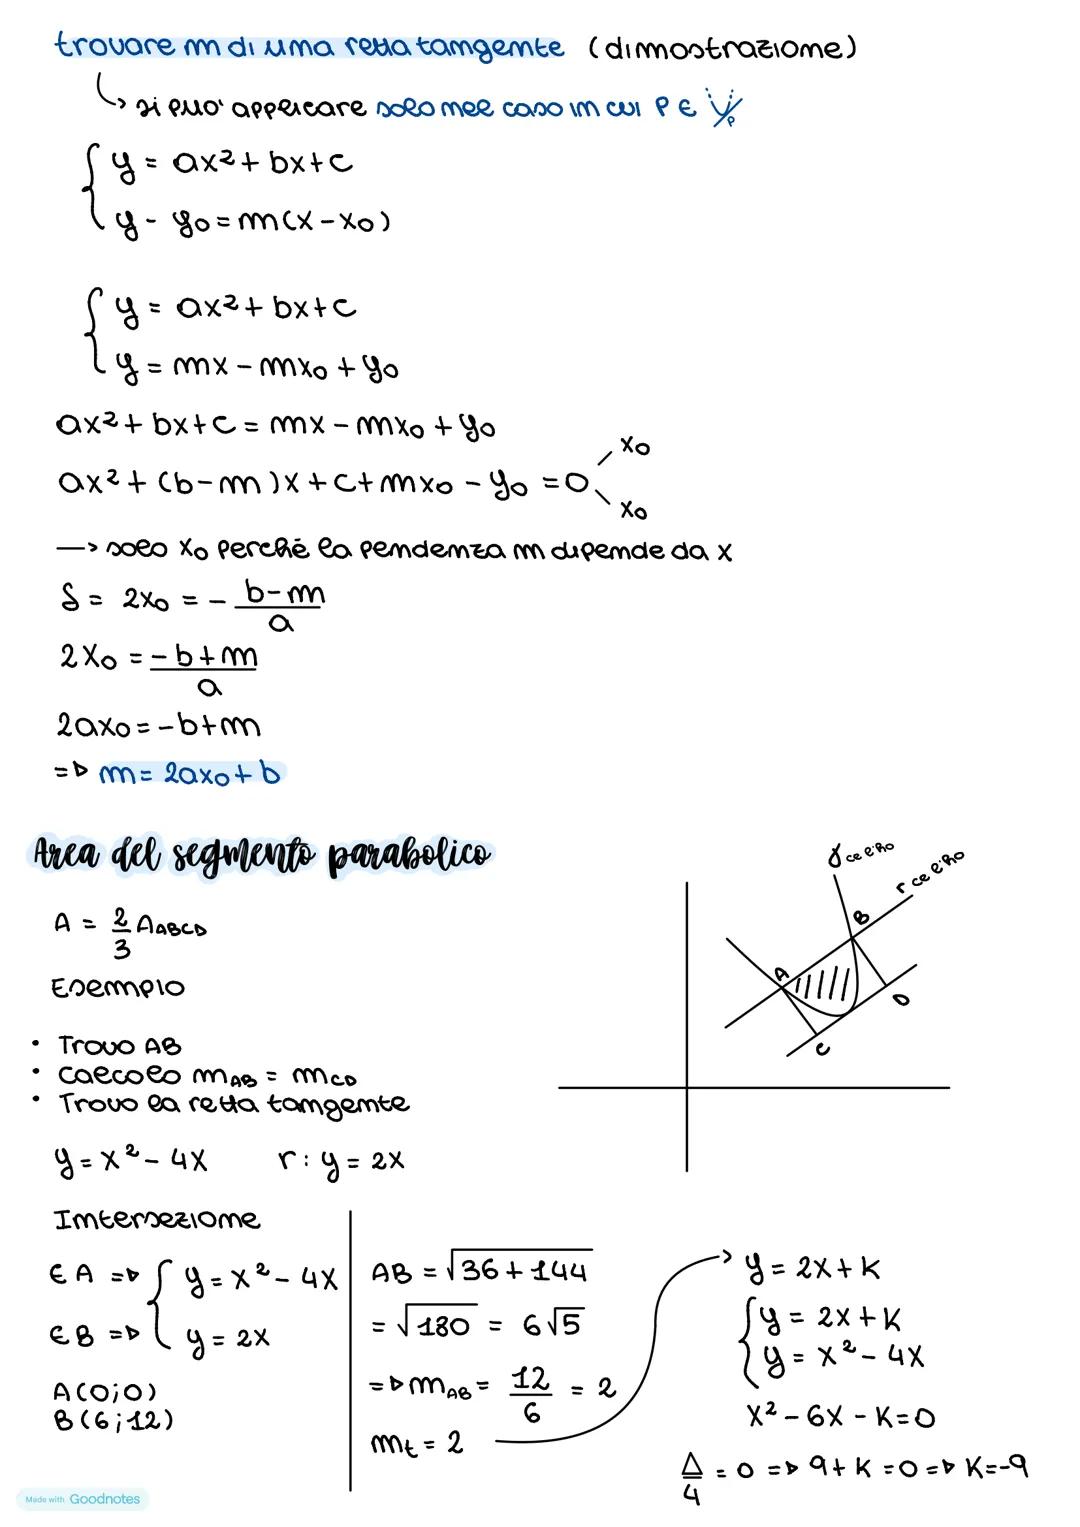 trovare m di una retta tangente (dimostrazione)
si può applicare solo nel caso in cui P ∈ P
y = ax² + bx + c
y - y₀ = m(x - x₀)
y = ax² + bx + c
y = mx - mx₀ + y₀
ax² + bx + c = mx - mx₀ + y₀
x₀
ax² + (b-m)x + c + mx₀ - y₀ = 0
x₀
—> solo x₀ perché la pendenza m dipende da x
S = 2x₀ = - b-m / a
2x₀ = -b+m / a
2ax₀ = -b+m
=> m = 2ax₀ + b
Area del segmento parabolico
γ ce l'ho
r ce l'ho
A = 2/3 A ABCD
B
A
D
C
Esempio
• Trovo AB
• calcolo m AB = m CD
• Trovo la retta tangente
y = x² - 4x r: y = 2x
Intersezione
∈ A => y = x² - 4x
∈ B => y = 2x
A(0;0)
B(6;12)
AB = √36 + 144
= √180 = 6√5
=> m AB = 12/6 = 2
m t = 2
—> y = 2x + K
y = 2x + K
y = x² - 4x
x² - 6x - K = 0
Δ/4 = 0 => 9 + K = 0 => K = -9
Made with Goodnotes